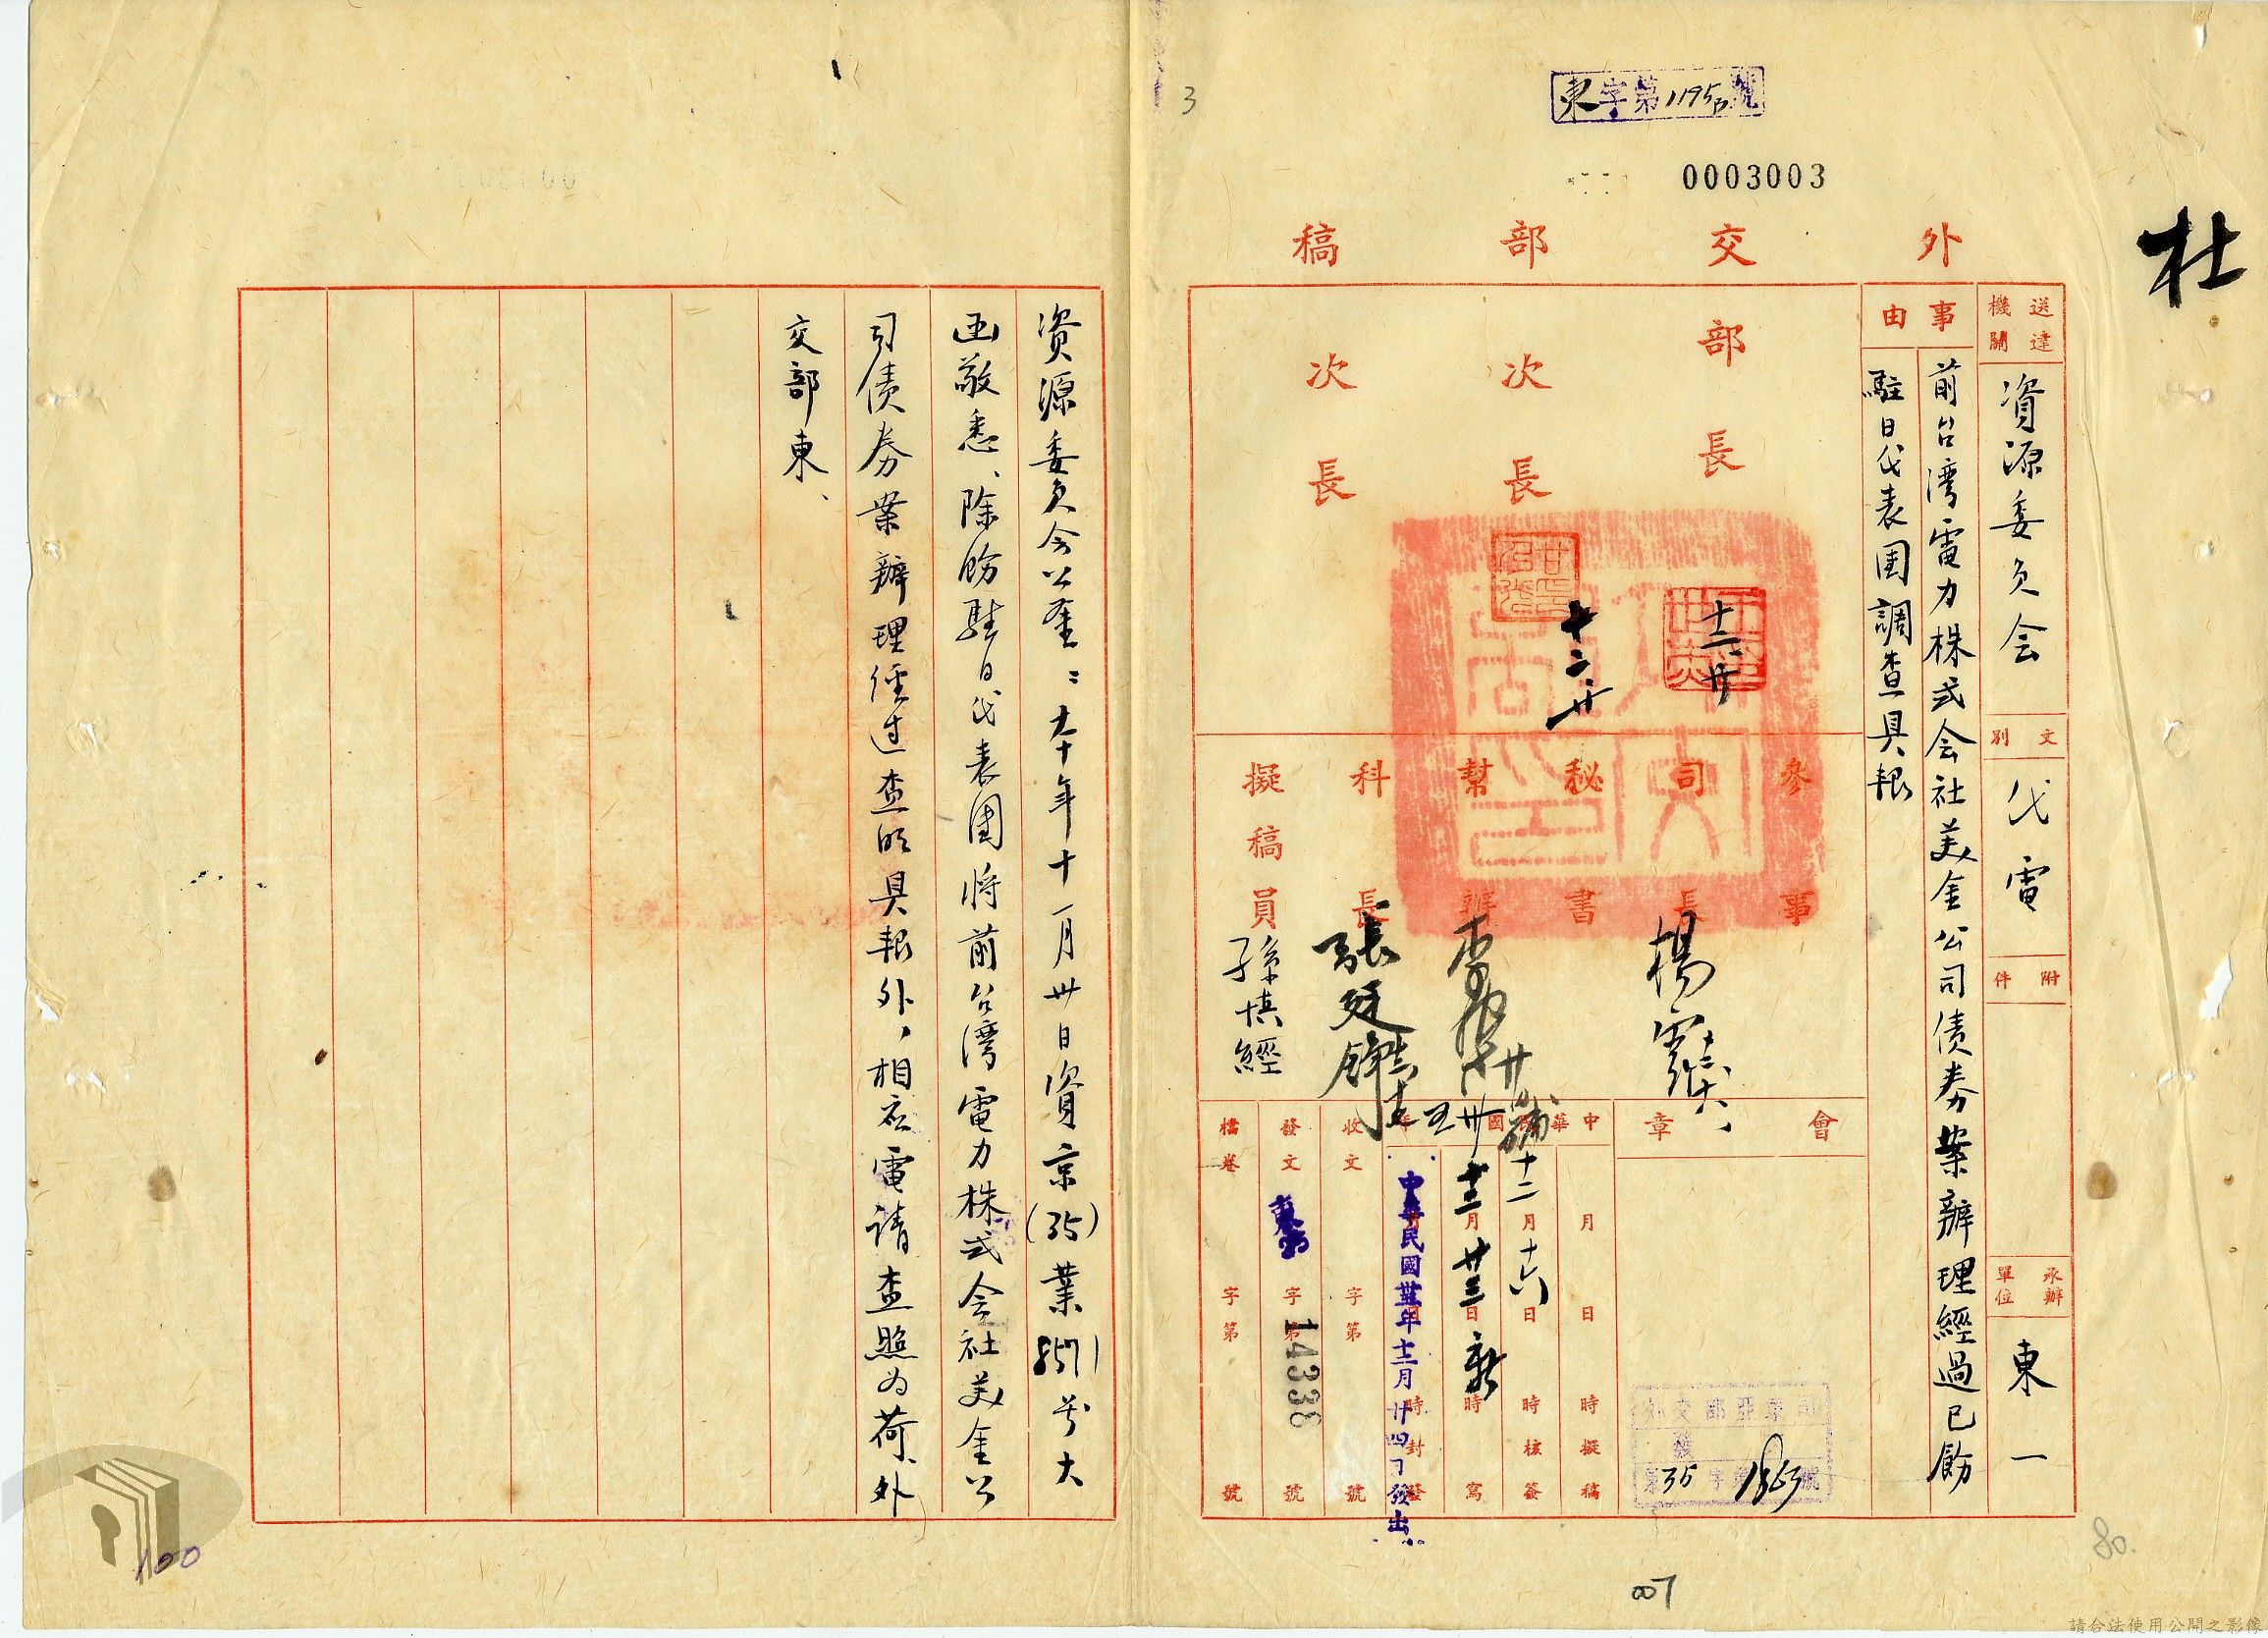 東字第1195B號
0003003
3
杜
外交部稿
送達機關
資源委員会
文別
代電
附件
承辦單位
東一
事由
前台湾電力株式会社美金公司債券業辦理經過已飭
駐日代表團調查具報
部長
次長
次長
十二、廿
十二、廿
參事
司長
秘書
幫辦
科長
擬稿員
楊
張廷錚
孫慎經
會章
外交部亞東司
第35字第1863號
中華民國
月日時擬稿
十二月十六日時核簽
十二月廿三日時寫
月日時封發
中華民國卅五年十二月廿四日發出
收文字第號
發文東35字第14338號
檔卷字第號
资源委员会公鉴:卅五年十一月卅日資京(35)業字號大
函敬悉、除飭駐日代表團將前台湾電力株式会社美金公
司债券業辦理经过查明具報外,相应電請查照为荷、外
交部東、
80.
007
100
請合法使用公開之影像